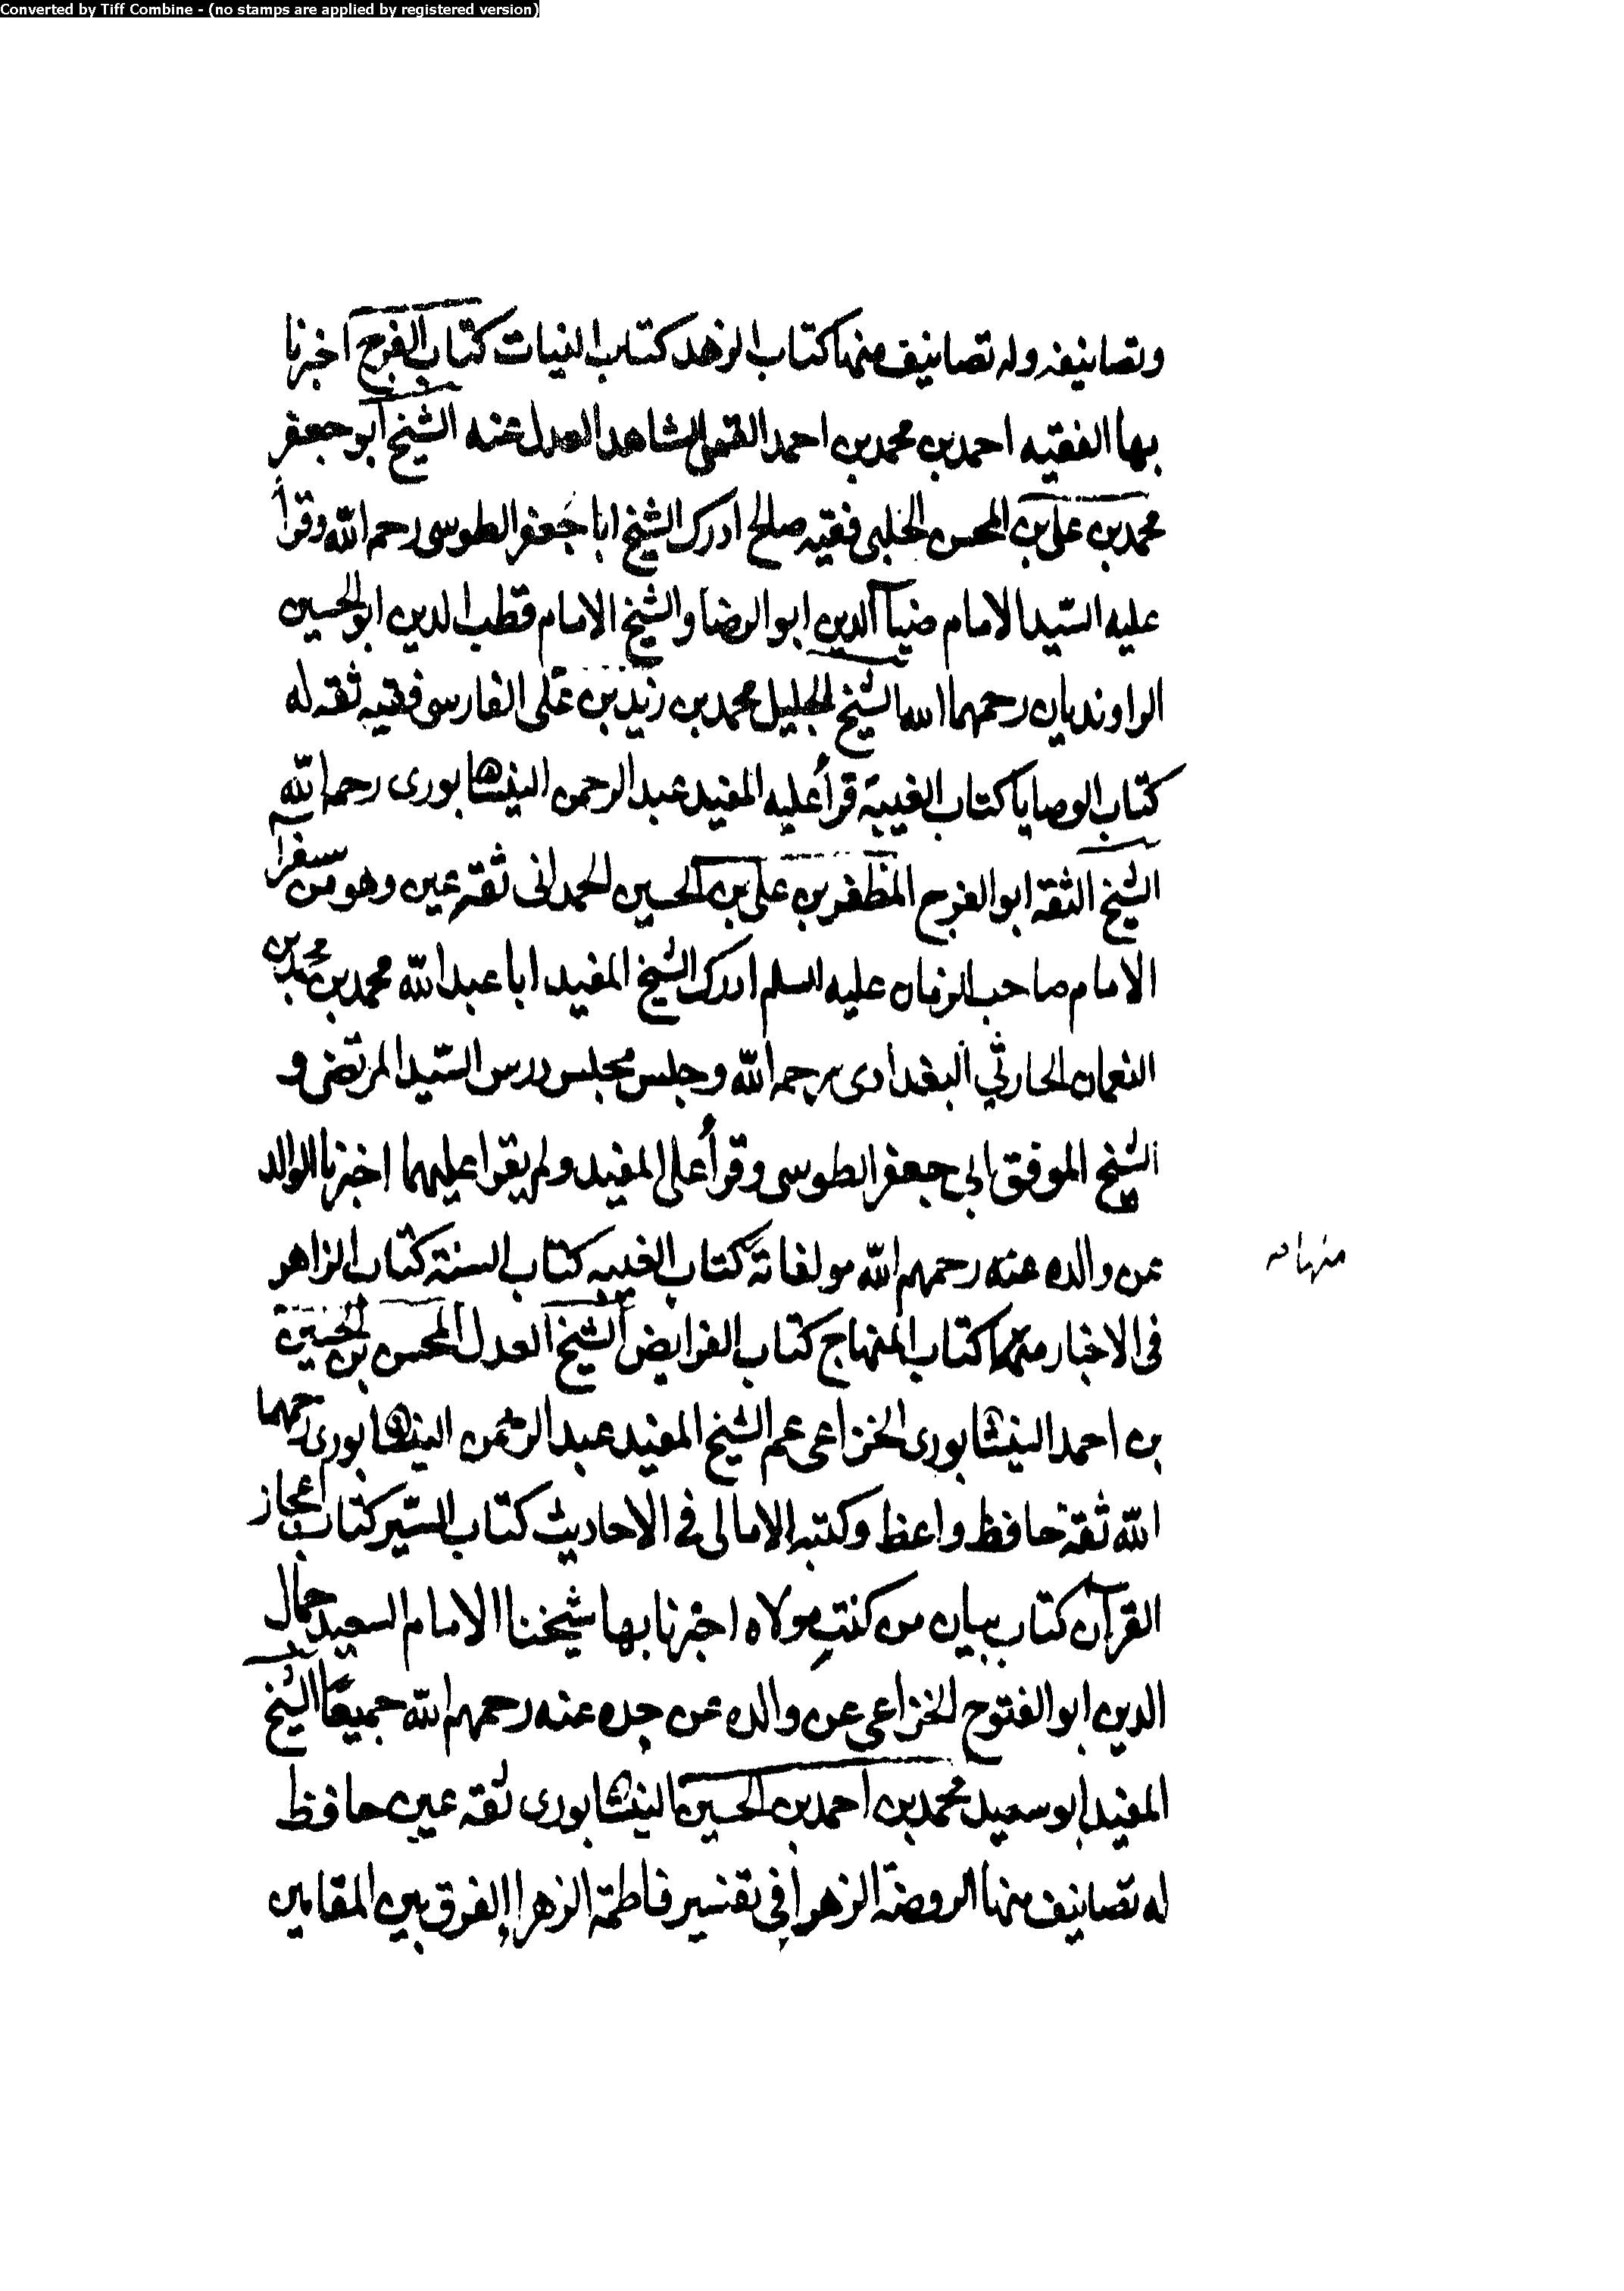 Converted by Tiff Combine - (no stamps are applied by registered version)
وتصانيفه وله تصانيف منها كتاب الزهد كتاب النيات كتاب الفرج اخبرنا
بها الفقيه احمد بن محمد بن احمد القمى الشاهد العدل عنه الشيخ ابو جعفر
محمد بن على بن المحسن الحلبى فقيه صالح ادرك الشيخ ابا جعفر الطوسى رحمه الله وقرأ
عليه السيد الامام ضياء الدين ابو الرضا والشيخ الامام قطب الدين ابو الحسين
الراونديان رحمهما الله الشيخ الجليل محمد بن زيد بن على الفارسى فقيه ثقه له
كتاب الوصايا كتاب الغيبة قرأ عليه المفيد عبد الرحمن النيشابورى رحمه الله
الشيخ الثقه ابو الفرج المظفر بن على بن الحسين الحمدانى ثقه عين وهو من سفرآ
الامام صاحب الزمان عليه السلم ادرك الشيخ المفيد ابا عبد الله محمد بن محمد بن
النعمان الحارثي البغدادى رحمه الله وجلس مجلس درس السيد المرتضى و
الشيخ الموفق ابى جعفر الطوسى وقرأ على المفيد ولم يقرا عليهما اخبرنا الوالد
عن والده عنه رحمهم الله مولفاته كتاب الغيبه كتاب السنة كتاب الزاهر
منها
فى الاخبار كتاب المنهاج كتاب الفرايض الشيخ العدل المحسن بن الحسين
بن احمد النيشابورى الخزاعى عم الشيخ المفيد عبد الرحمن النيشابورى رحمهما
الله ثقة حافظ واعظ وكتبه الامالى فى الاحاديث كتاب السير كتاب اعجاز
القرآن كتاب بيان من كنت مولاه اخبرنا بها شيخنا الامام السعيد جمال
الدين ابو الفتوح الخزاعى عن والده عن جده عنه رحمهم الله جميعا الشيخ
المفيد ابو سعيد محمد بن احمد بن الحسين النيشابورى ثقه عين حافظ
له تصانيف منها الروضة الزهرا فى تفسير فاطمة الزهرا الفرق بين المقامين